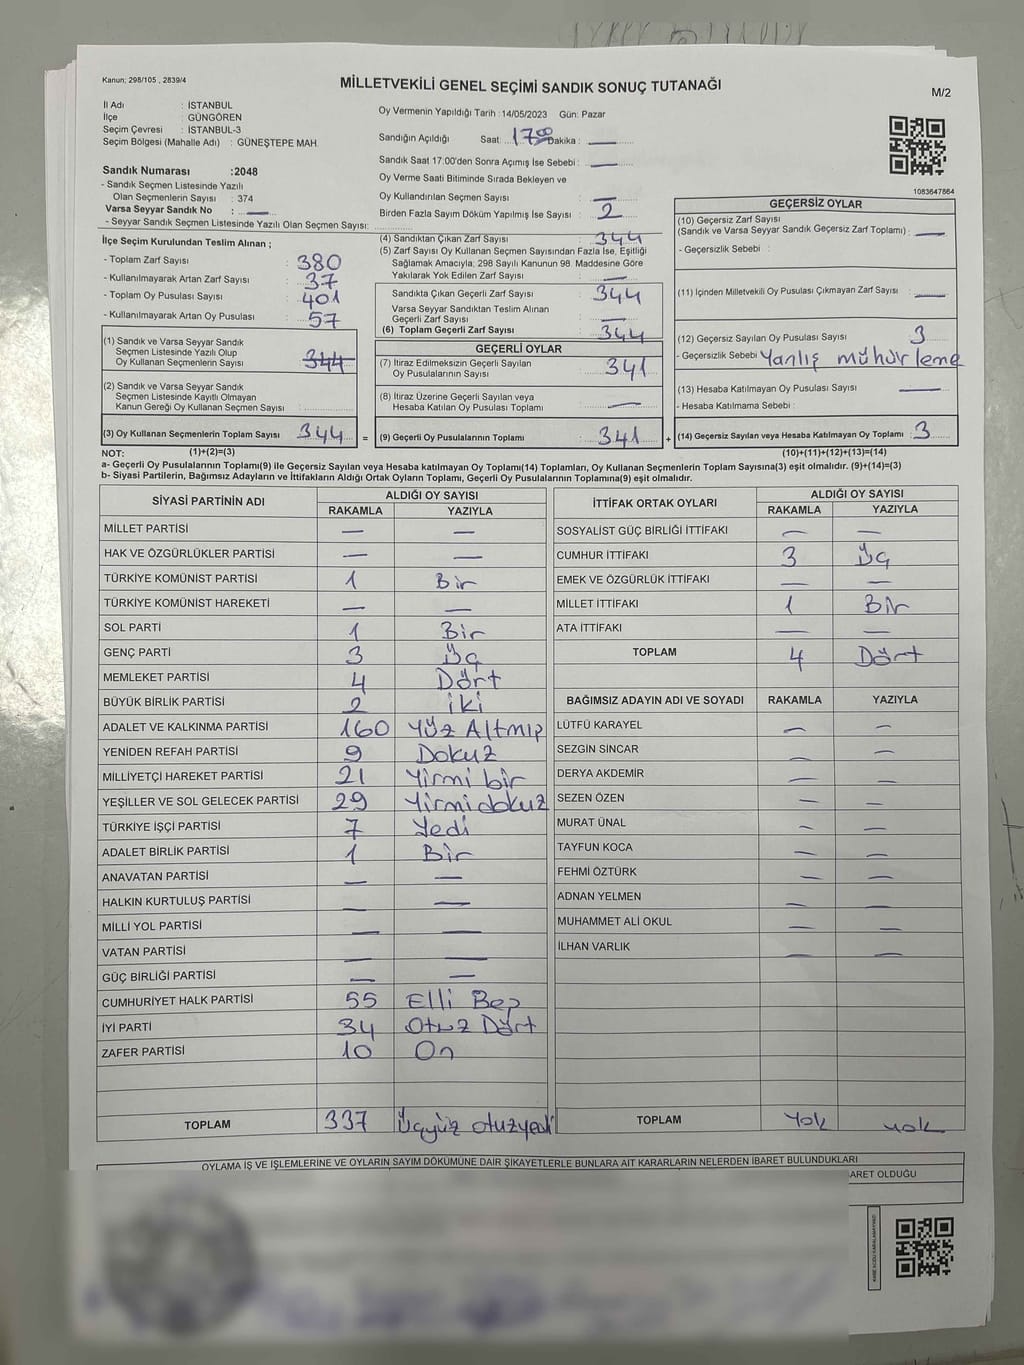 Kanun: 298/105 , 2839/4
MİLLETVEKİLİ GENEL SEÇİMİ SANDIK SONUÇ TUTANAĞI
M/2
İl Adı : İSTANBUL
İlçe : GÜNGÖREN
Seçim Çevresi : İSTANBUL-3
Seçim Bölgesi (Mahalle Adı) : GÜNEŞTEPE MAH.
Oy Vermenin Yapıldığı Tarih :14/05/2023 Gün: Pazar
Sandığın Açıldığı Saat: 17 00 Dakika: —
Sandık Saat 17:00'den Sonra Açımış İse Sebebi : —
Oy Verme Saati Bitiminde Sırada Bekleyen ve
Oy Kullandırılan Seçmen Sayısı : —
Birden Fazla Sayım Döküm Yapılmış İse Sayısı : 2
1083647864
Sandık Numarası :2048
- Sandık Seçmen Listesinde Yazılı
Olan Seçmenlerin Sayısı : 374
Varsa Seyyar Sandık No : —
- Seyyar Sandık Seçmen Listesinde Yazılı Olan Seçmen Sayısı:
İlçe Seçim Kurulundan Teslim Alınan ;
- Toplam Zarf Sayısı : 380
- Kullanılmayarak Artan Zarf Sayısı : 37
- Toplam Oy Pusulası Sayısı : 401
- Kullanılmayarak Artan Oy Pusulası : 57
(1) Sandık ve Varsa Seyyar Sandık
Seçmen Listesinde Yazılı Olup
Oy Kullanan Seçmenlerin Sayısı : 344
(2) Sandık ve Varsa Seyyar Sandık
Seçmen Listesinde Kayıtlı Olmayan
Kanun Gereği Oy Kullanan Seçmen Sayısı :
(3) Oy Kullanan Seçmenlerin Toplam Sayısı : 344
(1)+(2)=(3)
(4) Sandıktan Çıkan Zarf Sayısı : 344
(5) Zarf Sayısı Oy Kullanan Seçmen Sayısından Fazla İse, Eşitliği
Sağlamak Amacıyla; 298 Sayılı Kanunun 98. Maddesine Göre
Yakılarak Yok Edilen Zarf Sayısı : —
Sandıkta Çıkan Geçerli Zarf Sayısı : 344
Varsa Seyyar Sandıktan Teslim Alınan
Geçerli Zarf Sayısı : —
(6) Toplam Geçerli Zarf Sayısı : 344
GEÇERLİ OYLAR
(7) İtiraz Edilmeksizin Geçerli Sayılan
Oy Pusulalarının Sayısı : 341
(8) İtiraz Üzerine Geçerli Sayılan veya
Hesaba Katılan Oy Pusulası Toplamı : —
= (9) Geçerli Oy Pusulalarının Toplamı : 341 +
GEÇERSİZ OYLAR
(10) Geçersiz Zarf Sayısı
(Sandık ve Varsa Seyyar Sandık Geçersiz Zarf Toplamı) : —
- Geçersizlik Sebebi :
(11) İçinden Milletvekili Oy Pusulası Çıkmayan Zarf Sayısı : —
(12) Geçersiz Sayılan Oy Pusulası Sayısı : 3
- Geçersizlik Sebebi : Yanlış mühürleme
(13) Hesaba Katılmayan Oy Pusulası Sayısı : —
- Hesaba Katılmama Sebebi :
(14) Geçersiz Sayılan veya Hesaba Katılmayan Oy Toplamı : 3
(10)+(11)+(12)+(13)=(14)
NOT:
a- Geçerli Oy Pusulalarının Toplamı(9) ile Geçersiz Sayılan veya Hesaba katılmayan Oy Toplamı(14) Toplamları, Oy Kullanan Seçmenlerin Toplam Sayısına(3) eşit olmalıdır. (9)+(14)=(3)
b- Siyasi Partilerin, Bağımsız Adayların ve İttifakların Aldığı Ortak Oyların Toplamı, Geçerli Oy Pusulalarının Toplamına(9) eşit olmalıdır.
SİYASİ PARTİNİN ADI ALDIĞI OY SAYISI
RAKAMLA YAZIYLA
MİLLET PARTİSİ — —
HAK VE ÖZGÜRLÜKLER PARTİSİ — —
TÜRKİYE KOMÜNİST PARTİSİ 1 Bir
TÜRKİYE KOMÜNİST HAREKETİ — —
SOL PARTİ 1 Bir
GENÇ PARTİ 3 Üç
MEMLEKET PARTİSİ 4 Dört
BÜYÜK BİRLİK PARTİSİ 2 iki
ADALET VE KALKINMA PARTİSİ 160 Yüz Altmış
YENİDEN REFAH PARTİSİ 9 Dokuz
MİLLİYETÇİ HAREKET PARTİSİ 21 Yirmi bir
YEŞİLLER VE SOL GELECEK PARTİSİ 29 Yirmi dokuz
TÜRKİYE İŞÇİ PARTİSİ 7 Yedi
ADALET BİRLİK PARTİSİ 1 Bir
ANAVATAN PARTİSİ — —
HALKIN KURTULUŞ PARTİSİ — —
MİLLİ YOL PARTİSİ — —
VATAN PARTİSİ — —
GÜÇ BİRLİĞİ PARTİSİ — —
CUMHURİYET HALK PARTİSİ 55 Elli Beş
İYİ PARTİ 34 Otuz Dört
ZAFER PARTİSİ 10 On
TOPLAM 337 Üçyüz otuzyedi
İTTİFAK ORTAK OYLARI ALDIĞI OY SAYISI
RAKAMLA YAZIYLA
SOSYALİST GÜÇ BİRLİĞİ İTTİFAKI — —
CUMHUR İTTİFAKI 3 Üç
EMEK VE ÖZGÜRLÜK İTTİFAKI — —
MİLLET İTTİFAKI 1 Bir
ATA İTTİFAKI — —
TOPLAM 4 Dört
BAĞIMSIZ ADAYIN ADI VE SOYADI RAKAMLA YAZIYLA
LÜTFÜ KARAYEL — —
SEZGİN SINCAR —
DERYA AKDEMİR — —
SEZEN ÖZEN — —
MURAT ÜNAL — —
TAYFUN KOCA — —
FEHMİ ÖZTÜRK — —
ADNAN YELMEN — —
MUHAMMET ALİ OKUL — —
İLHAN VARLIK — —
TOPLAM Yok yok
OYLAMA İŞ VE İŞLEMLERİNE VE OYLARIN SAYIM DÖKÜMÜNE DAİR ŞİKAYETLERLE BUNLARA AİT KARARLARIN NELERDEN İBARET BULUNDUKLARI
ARET OLDUĞU